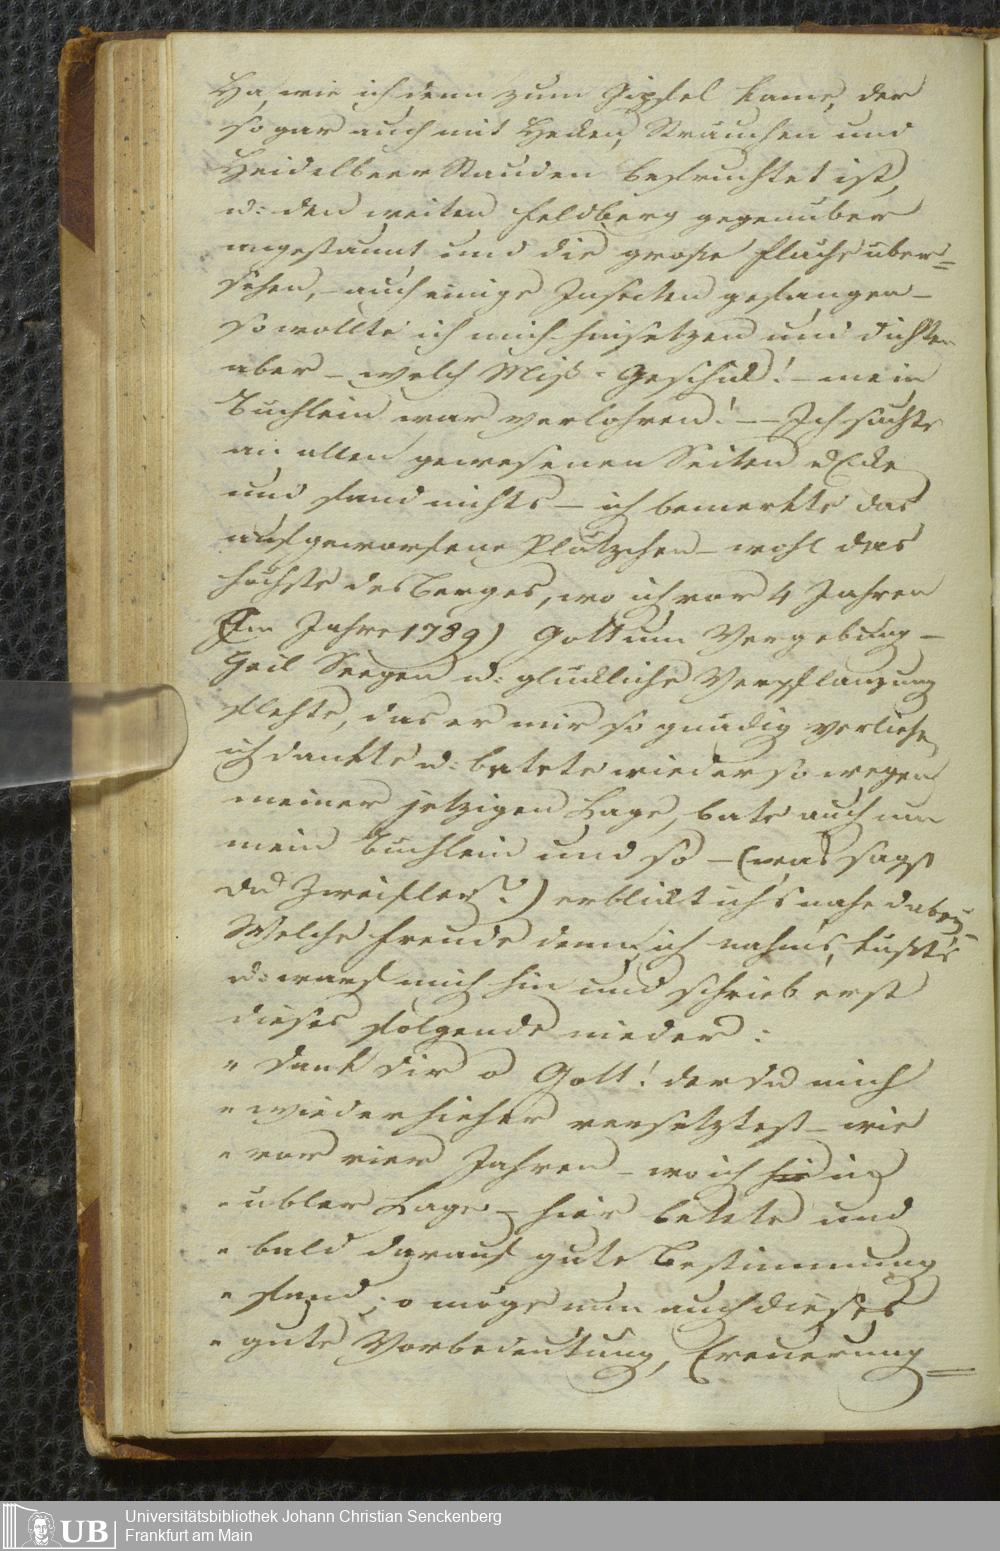 Ha, wie ich denn zum Gipfel kame, der
sogar auch mit Hecken, Sträuchen und
Heidelbeer Stauden befruchtet ist,
u: den weiten Feldberg gegenuber
angestaunt und die grose Flache uber=
sehen, – auch einige Insecten gefangen –
so wollte ich mich hinsetzen und dichten
aber – welch Miß-Geschick! – mein
Buchlein war verlohren! – – Ich suchte
an allen gewesenen Seiten u Ecke
und fand nichts – ich bemerkte das
aufgeworfene Pläzchen – wohl das
höchste des Berges, wo ich vor 4 Jahren
(Im Jahre 1789) Gott um Vergebung –
Heil Seegen u: glückliche Verpflanzung
flehte, das er mir so gnädig verliehe,
ich dankte u: betete wieder so wegen
meiner jetzigen Lage, bate auch um
mein Buchlein und so – (was sagst
du Zweifler?) erblickt ich's nahe dabey –
Welche Freude denn, ich nahms, kußt's
u: warf mich hin und schrieb erst
dieses folgende nieder:
" Dank dir o Gott! der du mich
" wieder hieher versetztest – wie
" vor vier Jahren – wo ich in
" ubler Lage – hier betete und
" bald darauf gute Bestimmung
" fand; o möge nun auch dieses
" gute Vorbedeutung, Erneuerung
UB
Universitätsbibliothek Johann Christian Senckenberg
Frankfurt am Main